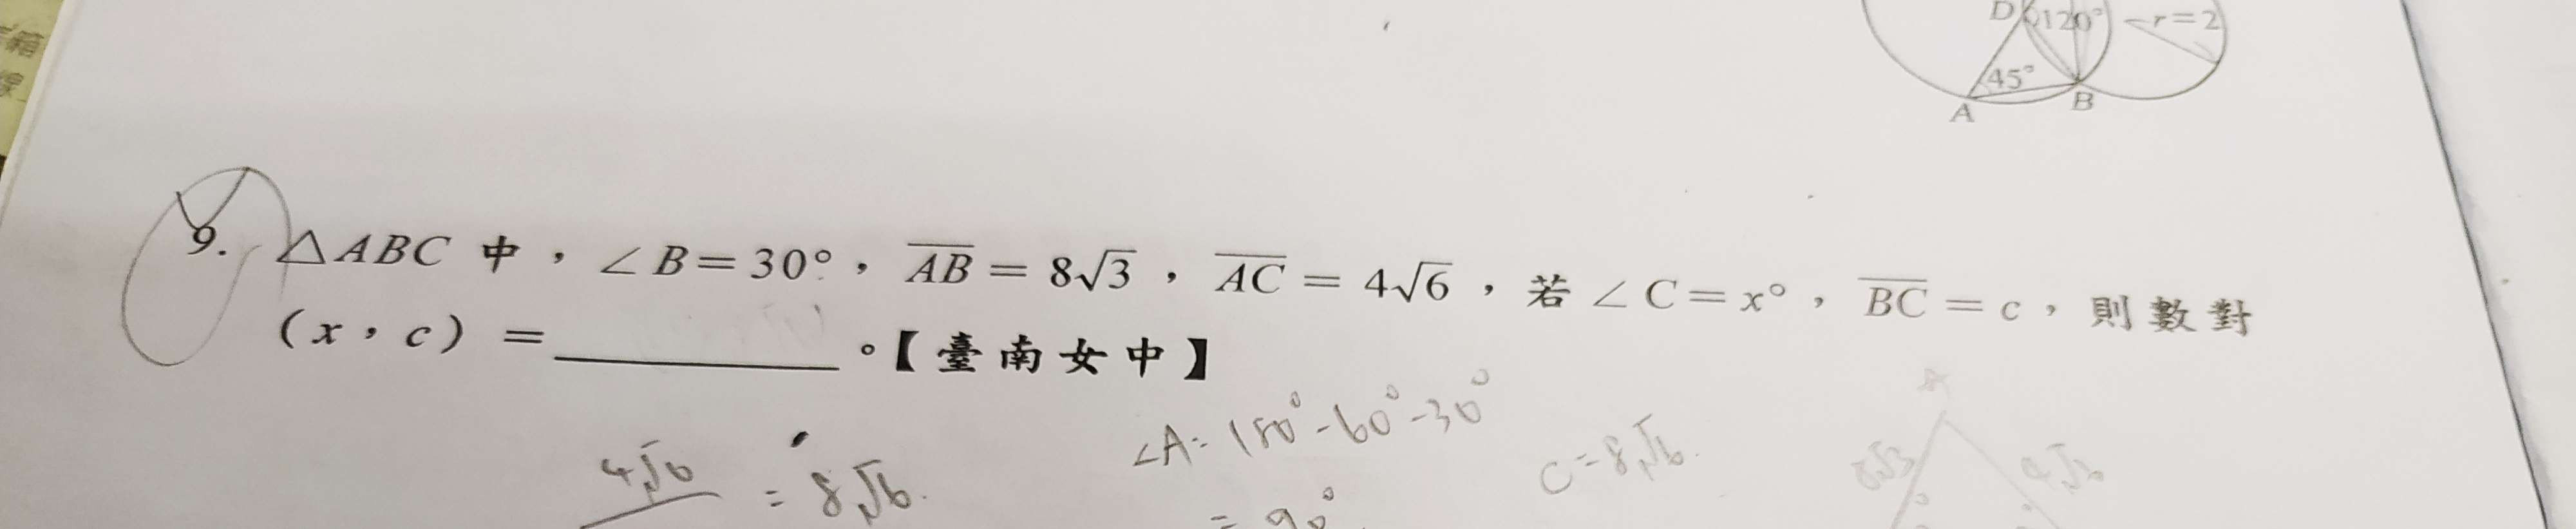 D 120° r=2
45°
A B
9. △ABC 中，∠B=30°，AB=8√3，AC=4√6，若∠C=x°，BC=c，則數對
(x，c)=________。【臺南女中】
∠A=180°-60°-30°
4√6 = 8√6.
C=8√6.
8√3
= 90°